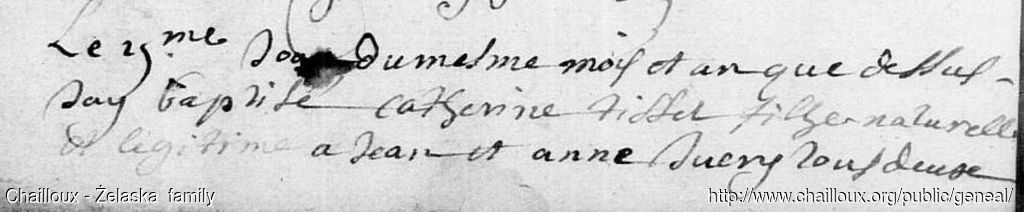 Le 15me jour du mesme mois et an que dessus
Jay baptise catherine tisset filhe naturelle
et legitime a Jean et anne suery tous deux
Chailloux - Żelaska family
http://www.chailloux.org/public/geneal/